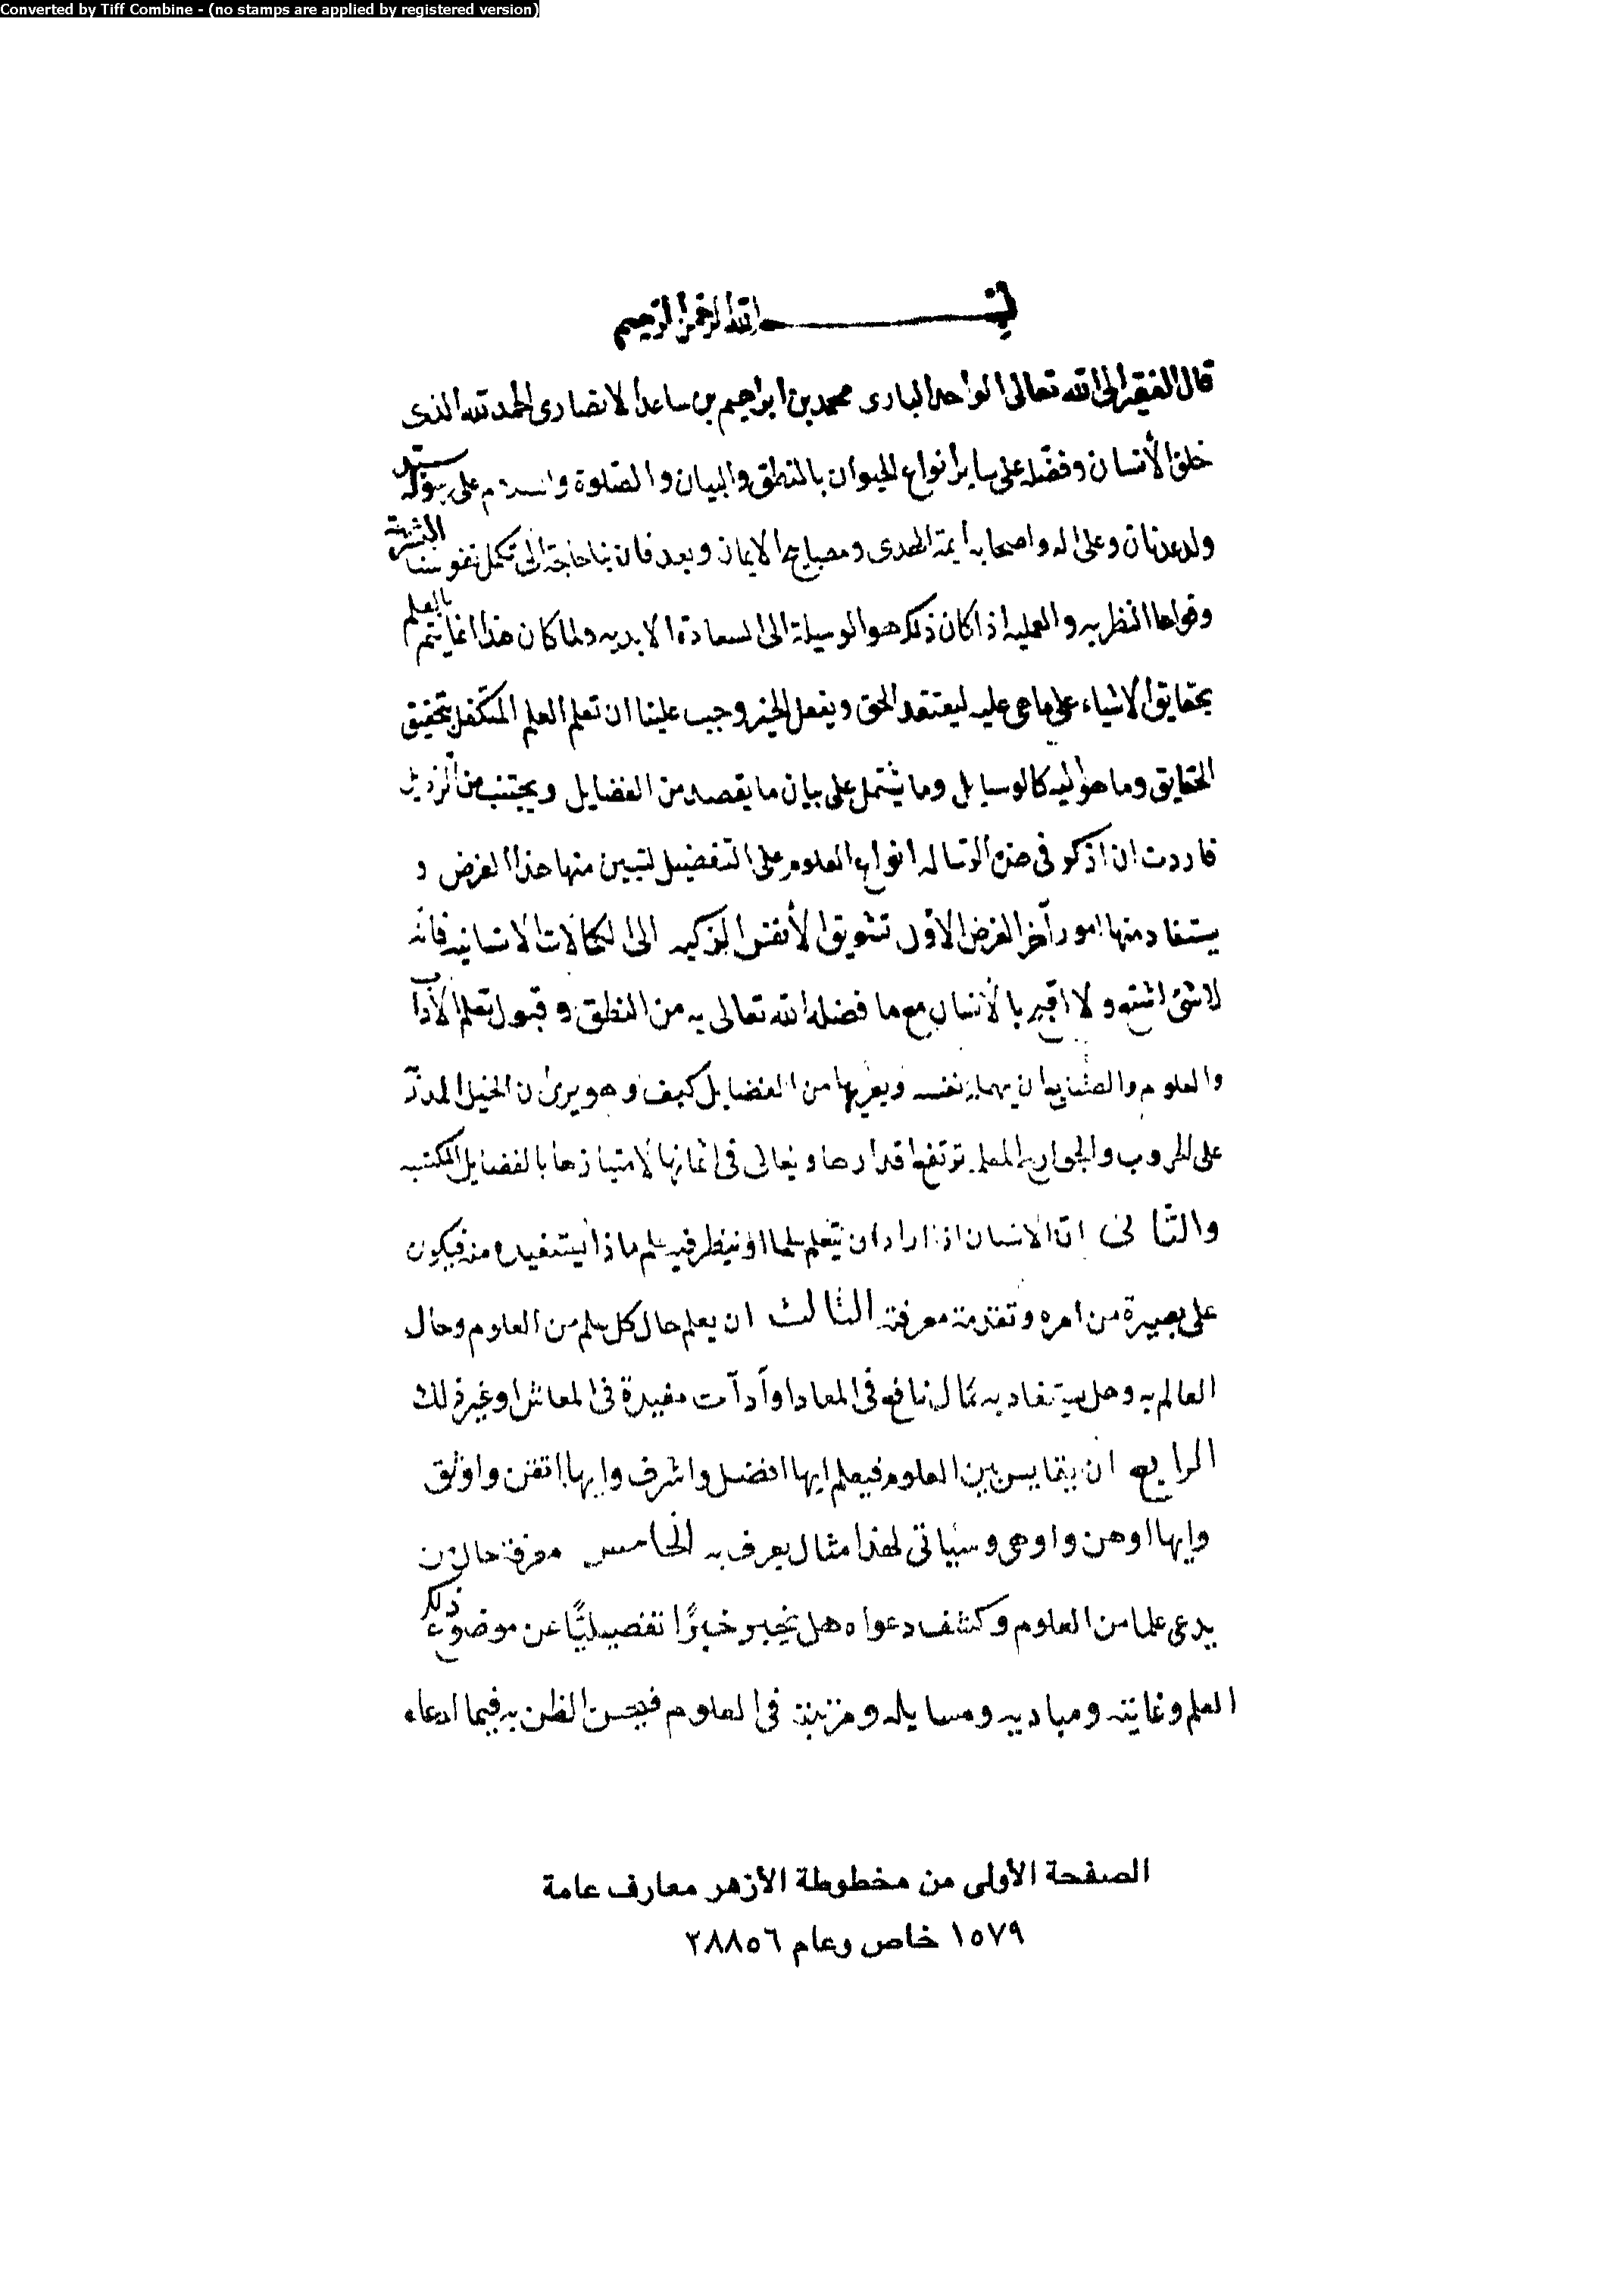 Converted by Tiff Combine - (no stamps are applied by registered version)
بسم الله الرحمن الرحيم
قال الفقير الى الله تعالى الواحد البارى محمد بن ابراهيم بن ساعد الانصارى الحمد لله الذى
خلق الأنسان وفضّله على ساير انواع الحيوان بالنطق والبيان والصّلوة والسلام على رسوله سيّد
ولد عدنان وعلى اله واصحابه ايمة الهدى ومصابيح الايمان وبعد فان بنا حاجة الى تكمل نفوسنا البشرية
وقواها النظريه والعمليه اذ كان ذلك هو الوسيلة الى السعادة الابديه ولما كان هذا انما يتم بالعلم
بحقايق الاشياء على ما هى عليه ليعتقد الحق ويفعل الخير وجب علينا ان نعلم العلم المتكفل بتحقيق
الحقايق وما هو اليه كالوسايل وما يشتمل على بيان ما يقصد من الفضايل ويجتنب من الرذيل
فاردت ان اذكر فى هذه الرّساله انواع العلوم على التفضيل لتبين منها هذا الغرض و
يستفاد منها امور آخر الغرض الاوّل تشويق الأنفس الزكيه الى الكمالات الانسانيه فانه
لا شئ اشنع ولا اقبح بالأنسان مع ما فضله الله تعالى به من النطق وقبول تعلم الآداب
والعلوم والصنايع ان يهمل نفسه ويعريها من الفضايل كيف وهو يرى ان الخيل المدرّبة
على الحروب والجوارح المعلمه ترتفع اقدارها ويغالى فى اثمانها لامتيازها بالفضايل المكتسبه
والثانى انّ الانسان اذا اراد ان يتعلم علما او ينظر فيه علم ماذا يستفيده منه فيكون
على بصيرة من امره وتقدمة معرفته الثالث ان يعلم حال كل علم من العلوم وحال
العالم به وهل يستفاد به كمال نافع فى المعاد او آدآت مفيدة فى المعاش او غير ذلك
الرابع ان يقايس بين العلوم فيعلم ايها افضل واشرف وايها اتقن واوثق
وايها اوهن واوهى وسيأتى لهذا مثال يعرف به الخامس معرفة حال من
يدعى علما من العلوم وكشف دعواه هل يخبر خبرًا تفصيليًّا عن موضوع ذلك
العلم وغايته ومباديه ومسايله ومرتبته فى العلوم فيحسن الظن به فيما ادعاه
الصفحة الأولى من مخطوطة الأزهر معارف عامة
١٥٧٩ خاص وعام ٢٨٨٥٦